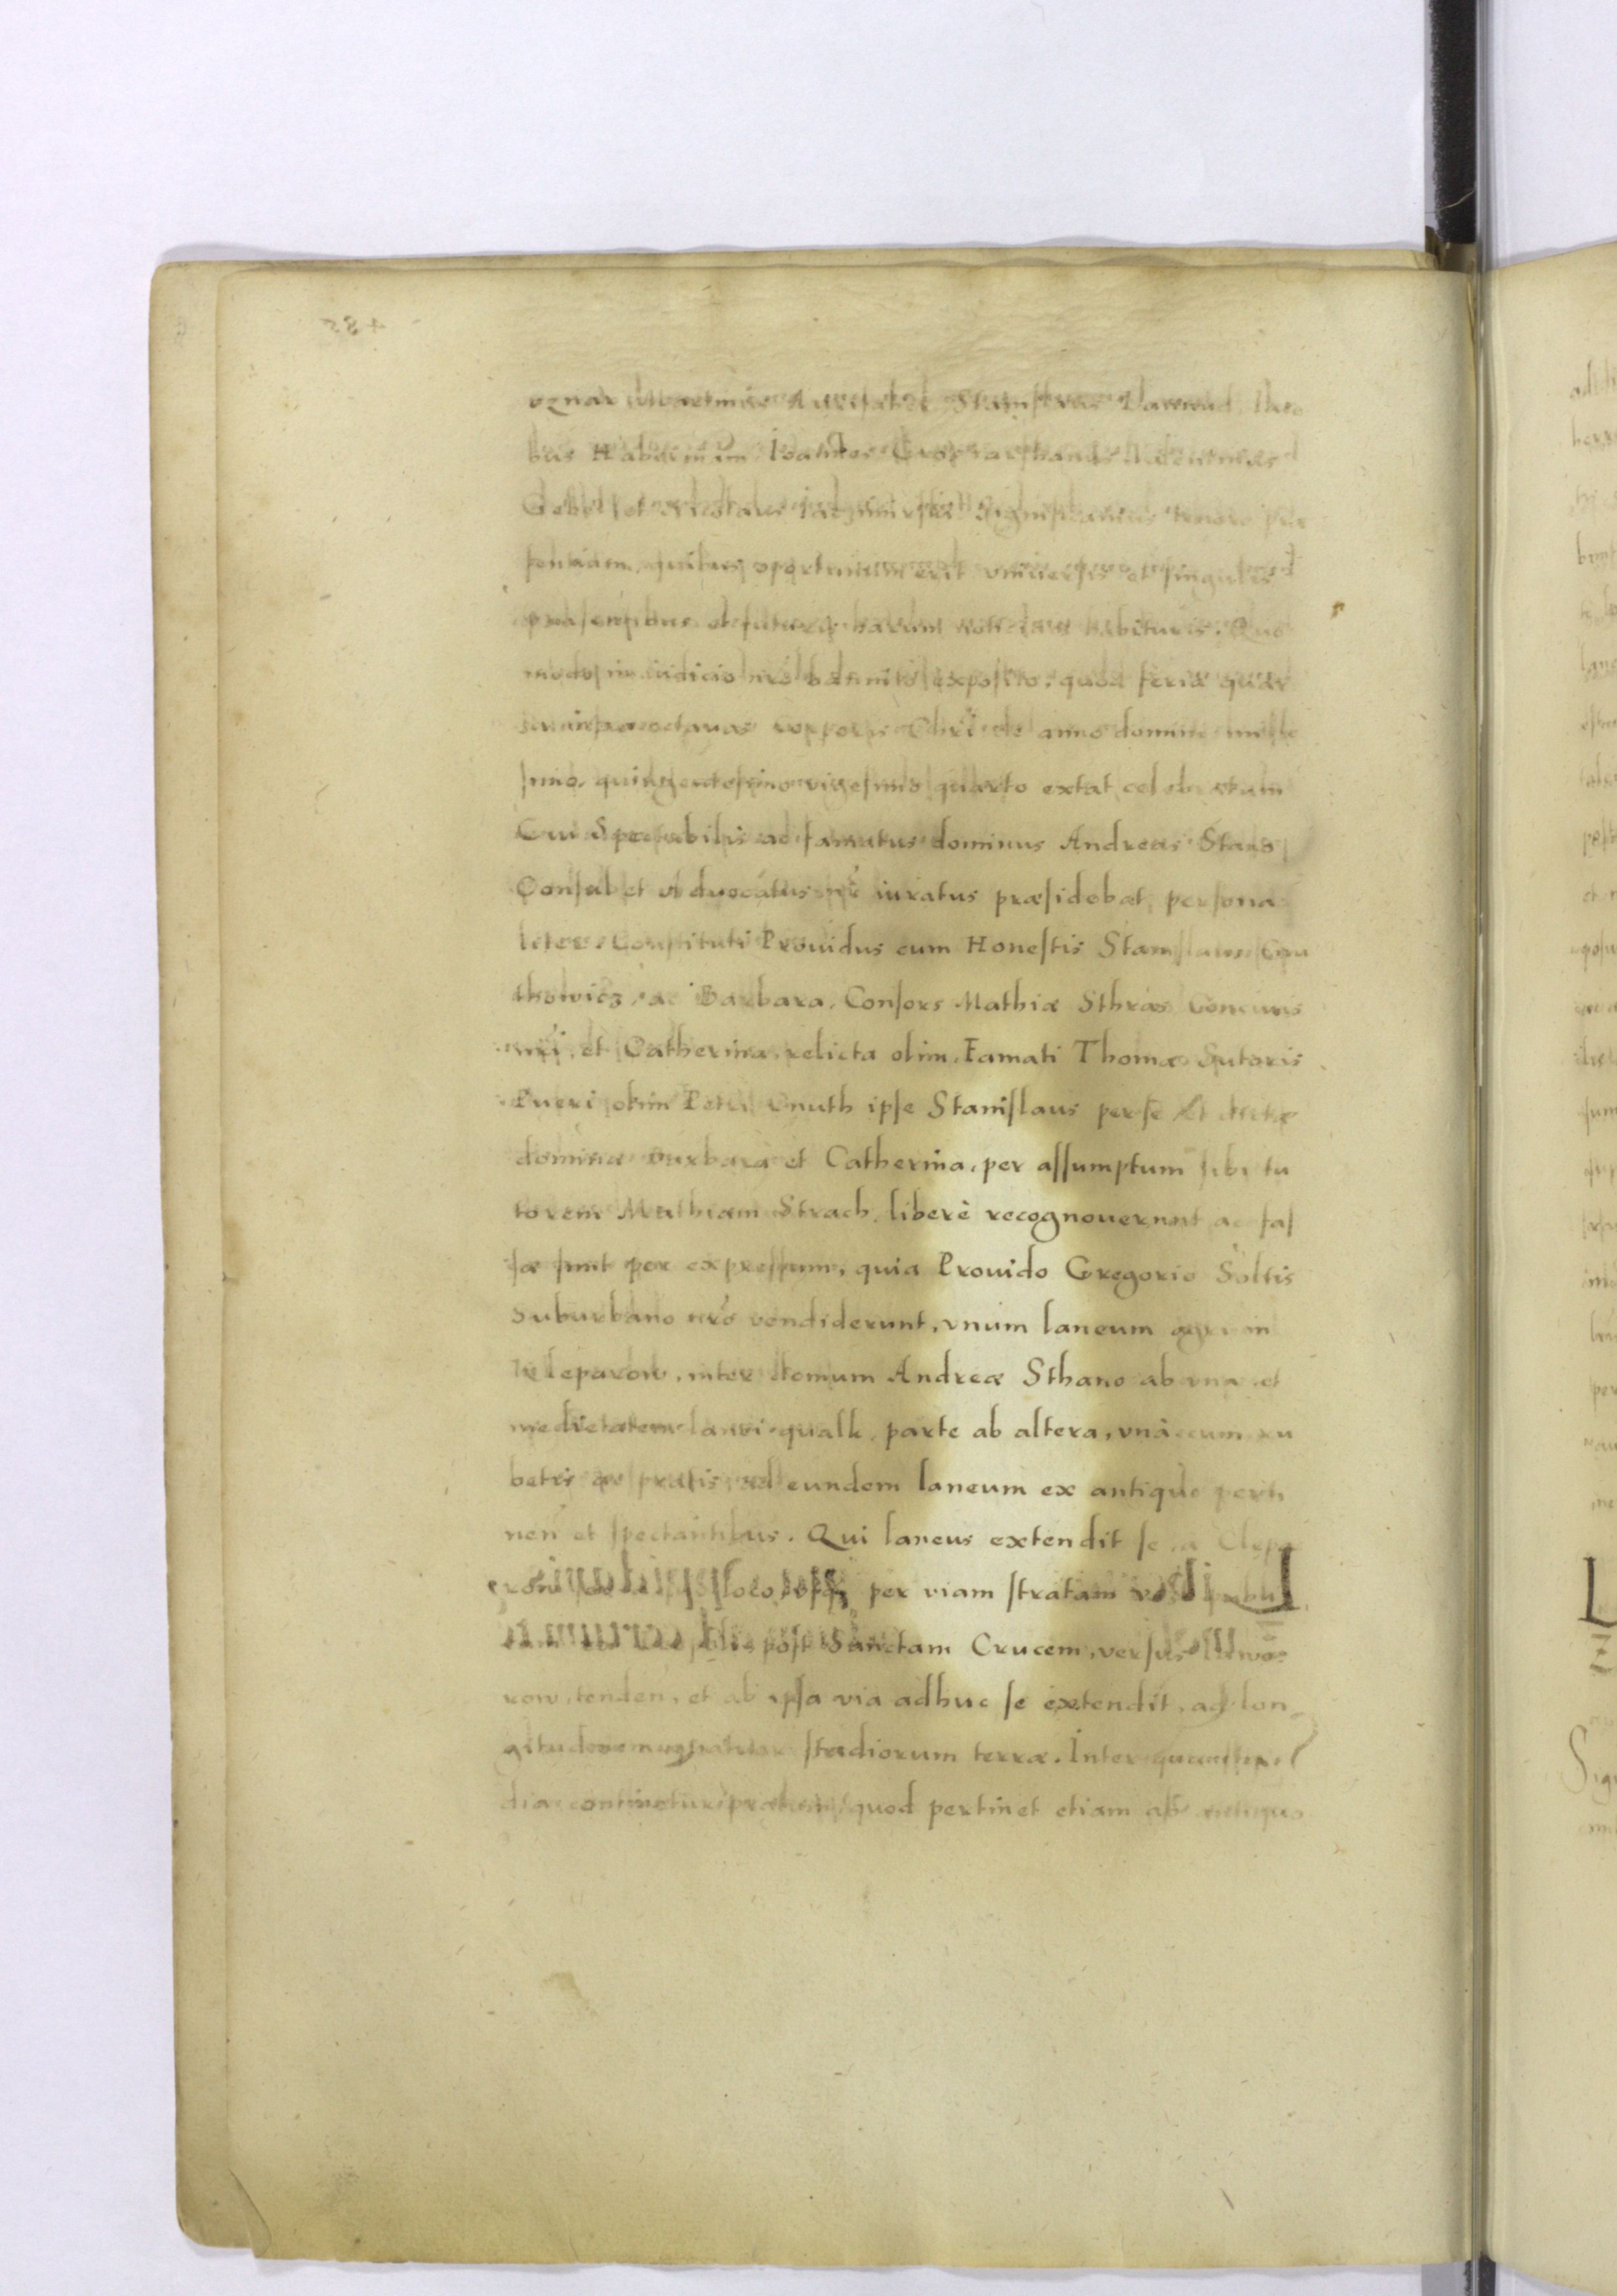 bus Ioannes
Gebel et Nicolaus Significamus tenore præ
sentium, quibus oportunum erit vniuersis et singulis
præsentibus et futuris harum noticiam habituris. Quo
modo in iudicio nr̃o bannito exposito, quod feria quar
ta infra octauas corporis Chr̃i de anno domini mille
simo, quingentesimo vigesimo quarto extat celebratum
Cui Spectabilis ac famatus dominus Andreas Stano
Consul et Aduocatus nr̃ iuratus præsidebat, persona
liter Constituti Prouidus cum Honestis Stanislaus Cnu
thowicz, ac Barbara, Consors Mathiæ Sthras Conciuis
nr̃i, et Catherina, relicta olim, Famati Thomæ Sutoris
Pueri olim Petri Cnuth ipse Stanislaus per se Et dictæ
dominæ Barbara et Catherina, per assumptum sibi tu
torem Mathiam Strach, liberè recognouerunt ac fas
sæ sunt per expressum, quia Prouido Gregorio Soltis
Suburbano nr̃o vendiderunt, vnum laneum agri in
Cleparow, inter domum Andreæ Sthano ab vna et
medietatem lanei parte ab altera, vnà cum ru
betis ac pratis, ad eundem laneum ex antiquo perti
nen̄ et spectantibus. Qui laneus extendit se a Clepa
loco, vsq₃ per viam stratam
post Sanctam Crucem, versus
row, tenden̄, et ab ipsa via adhuc se extendit, ad lon
gitudinem stadiorum terræ. Inter quæ sta
dia continetur pratum, quod pertinet etiam ab antiquo